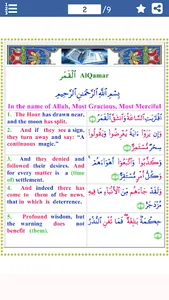 2
/9
الْقَمَر AlQamar
بِسْمِ اللَّهِ الرَّحْمَنِ الرَّحِيمِ
In the name of Allah, Most Gracious, Most Merciful
1. The Hour has drawn near, and the moon has split.
اقْتَرَبَتِ السَّاعَةُ وَانشَقَّ الْقَمَرُ
2. And if they see a sign, they turn away and say: “A continuous magic.”
وَإِن يَرَوْا آيَةً يُعْرِضُوا وَيَقُولُوا سِحْرٌ مُّسْتَمِرٌّ
3. And they denied and followed their desires. And for every matter is a (time of) settlement.
وَكَذَّبُوا وَاتَّبَعُوا أَهْوَاءَهُمْ وَكُلُّ أَمْرٍ مُّسْتَقِرٌّ
4. And indeed there has come to them of the news, that in which is deterrence.
وَلَقَدْ جَاءَهُم مِّنَ الْأَنبَاءِ مَا فِيهِ مُزْدَجَرٌ
5. Profound wisdom, but the warning does not benefit (them).
حِكْمَةٌ بَالِغَةٌ فَمَا تُغْنِ النُّذُرُ